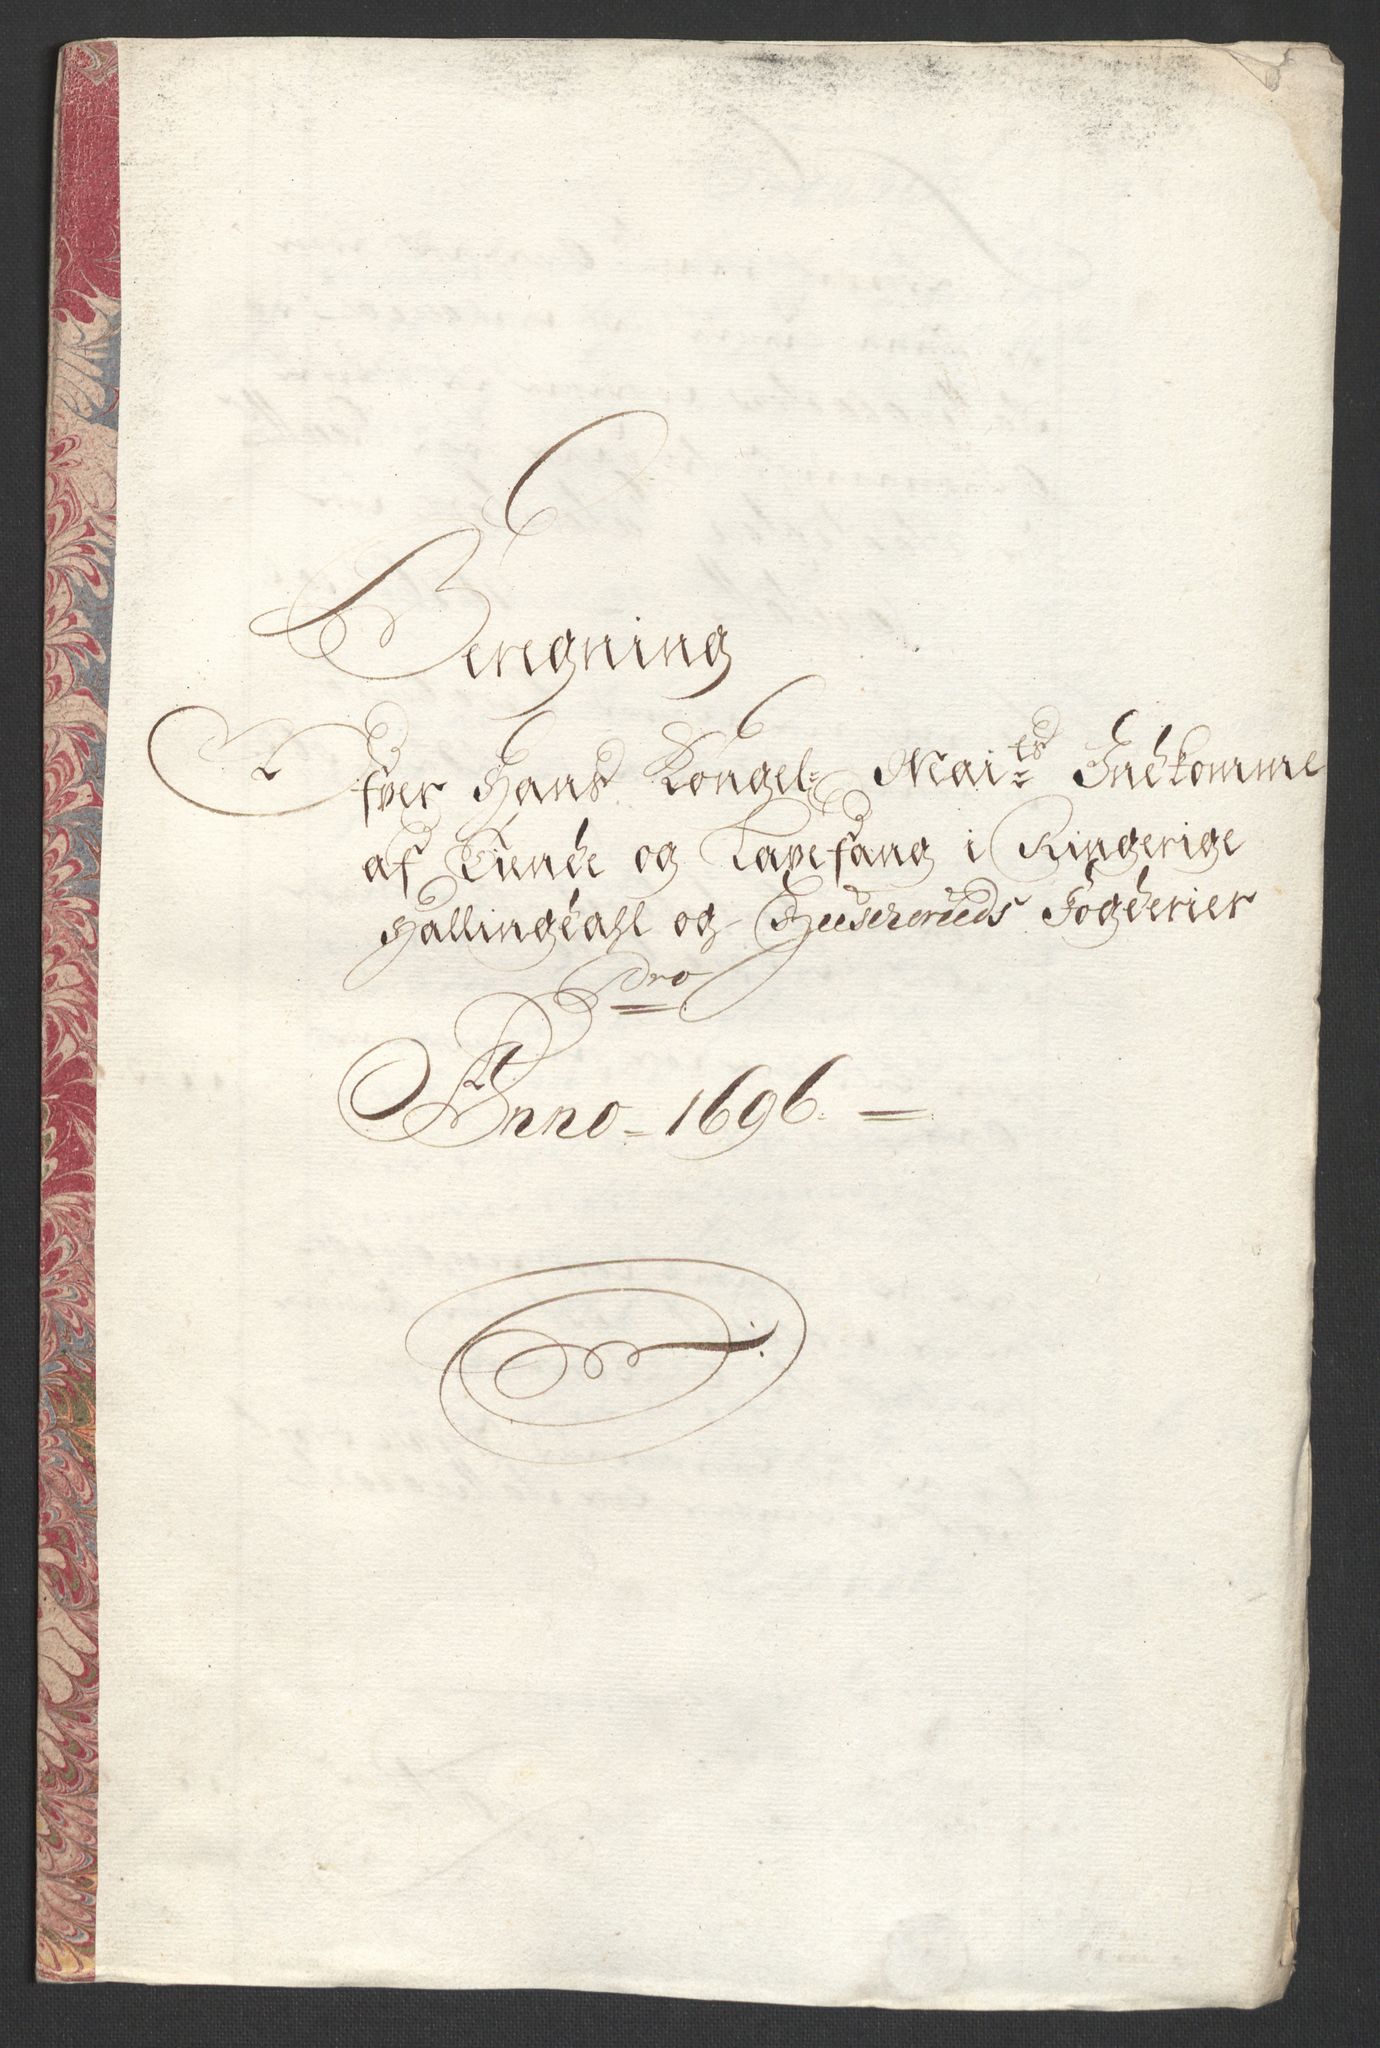 Beregning
Ofver Hans Kongel: Mai:ts Indkomme
af Tiende og Tavefang i Ringerige
Hallingdahl og Buscheruds Fogderier
Pro
Anno 1696.